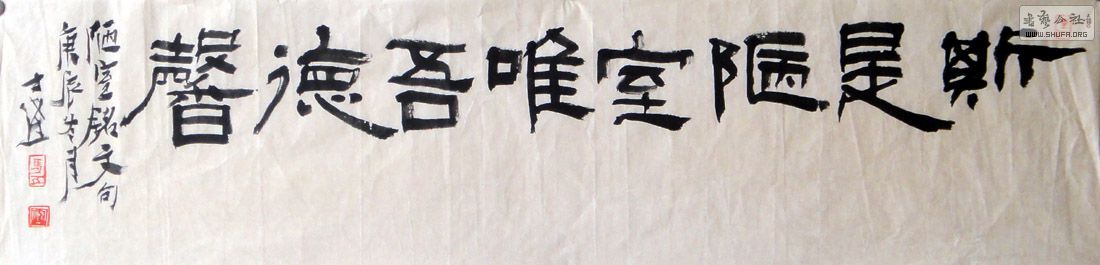 斯是陋室唯吾德馨
陋室铭文句
庚辰冬月
书艺公社
WWW.SHUFA.ORG